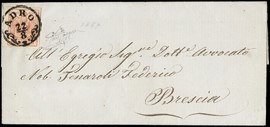 ADRO
All' Egregio Sig.re Dott.e Avvocato
Nob. Fenaroli Federico
Brescia